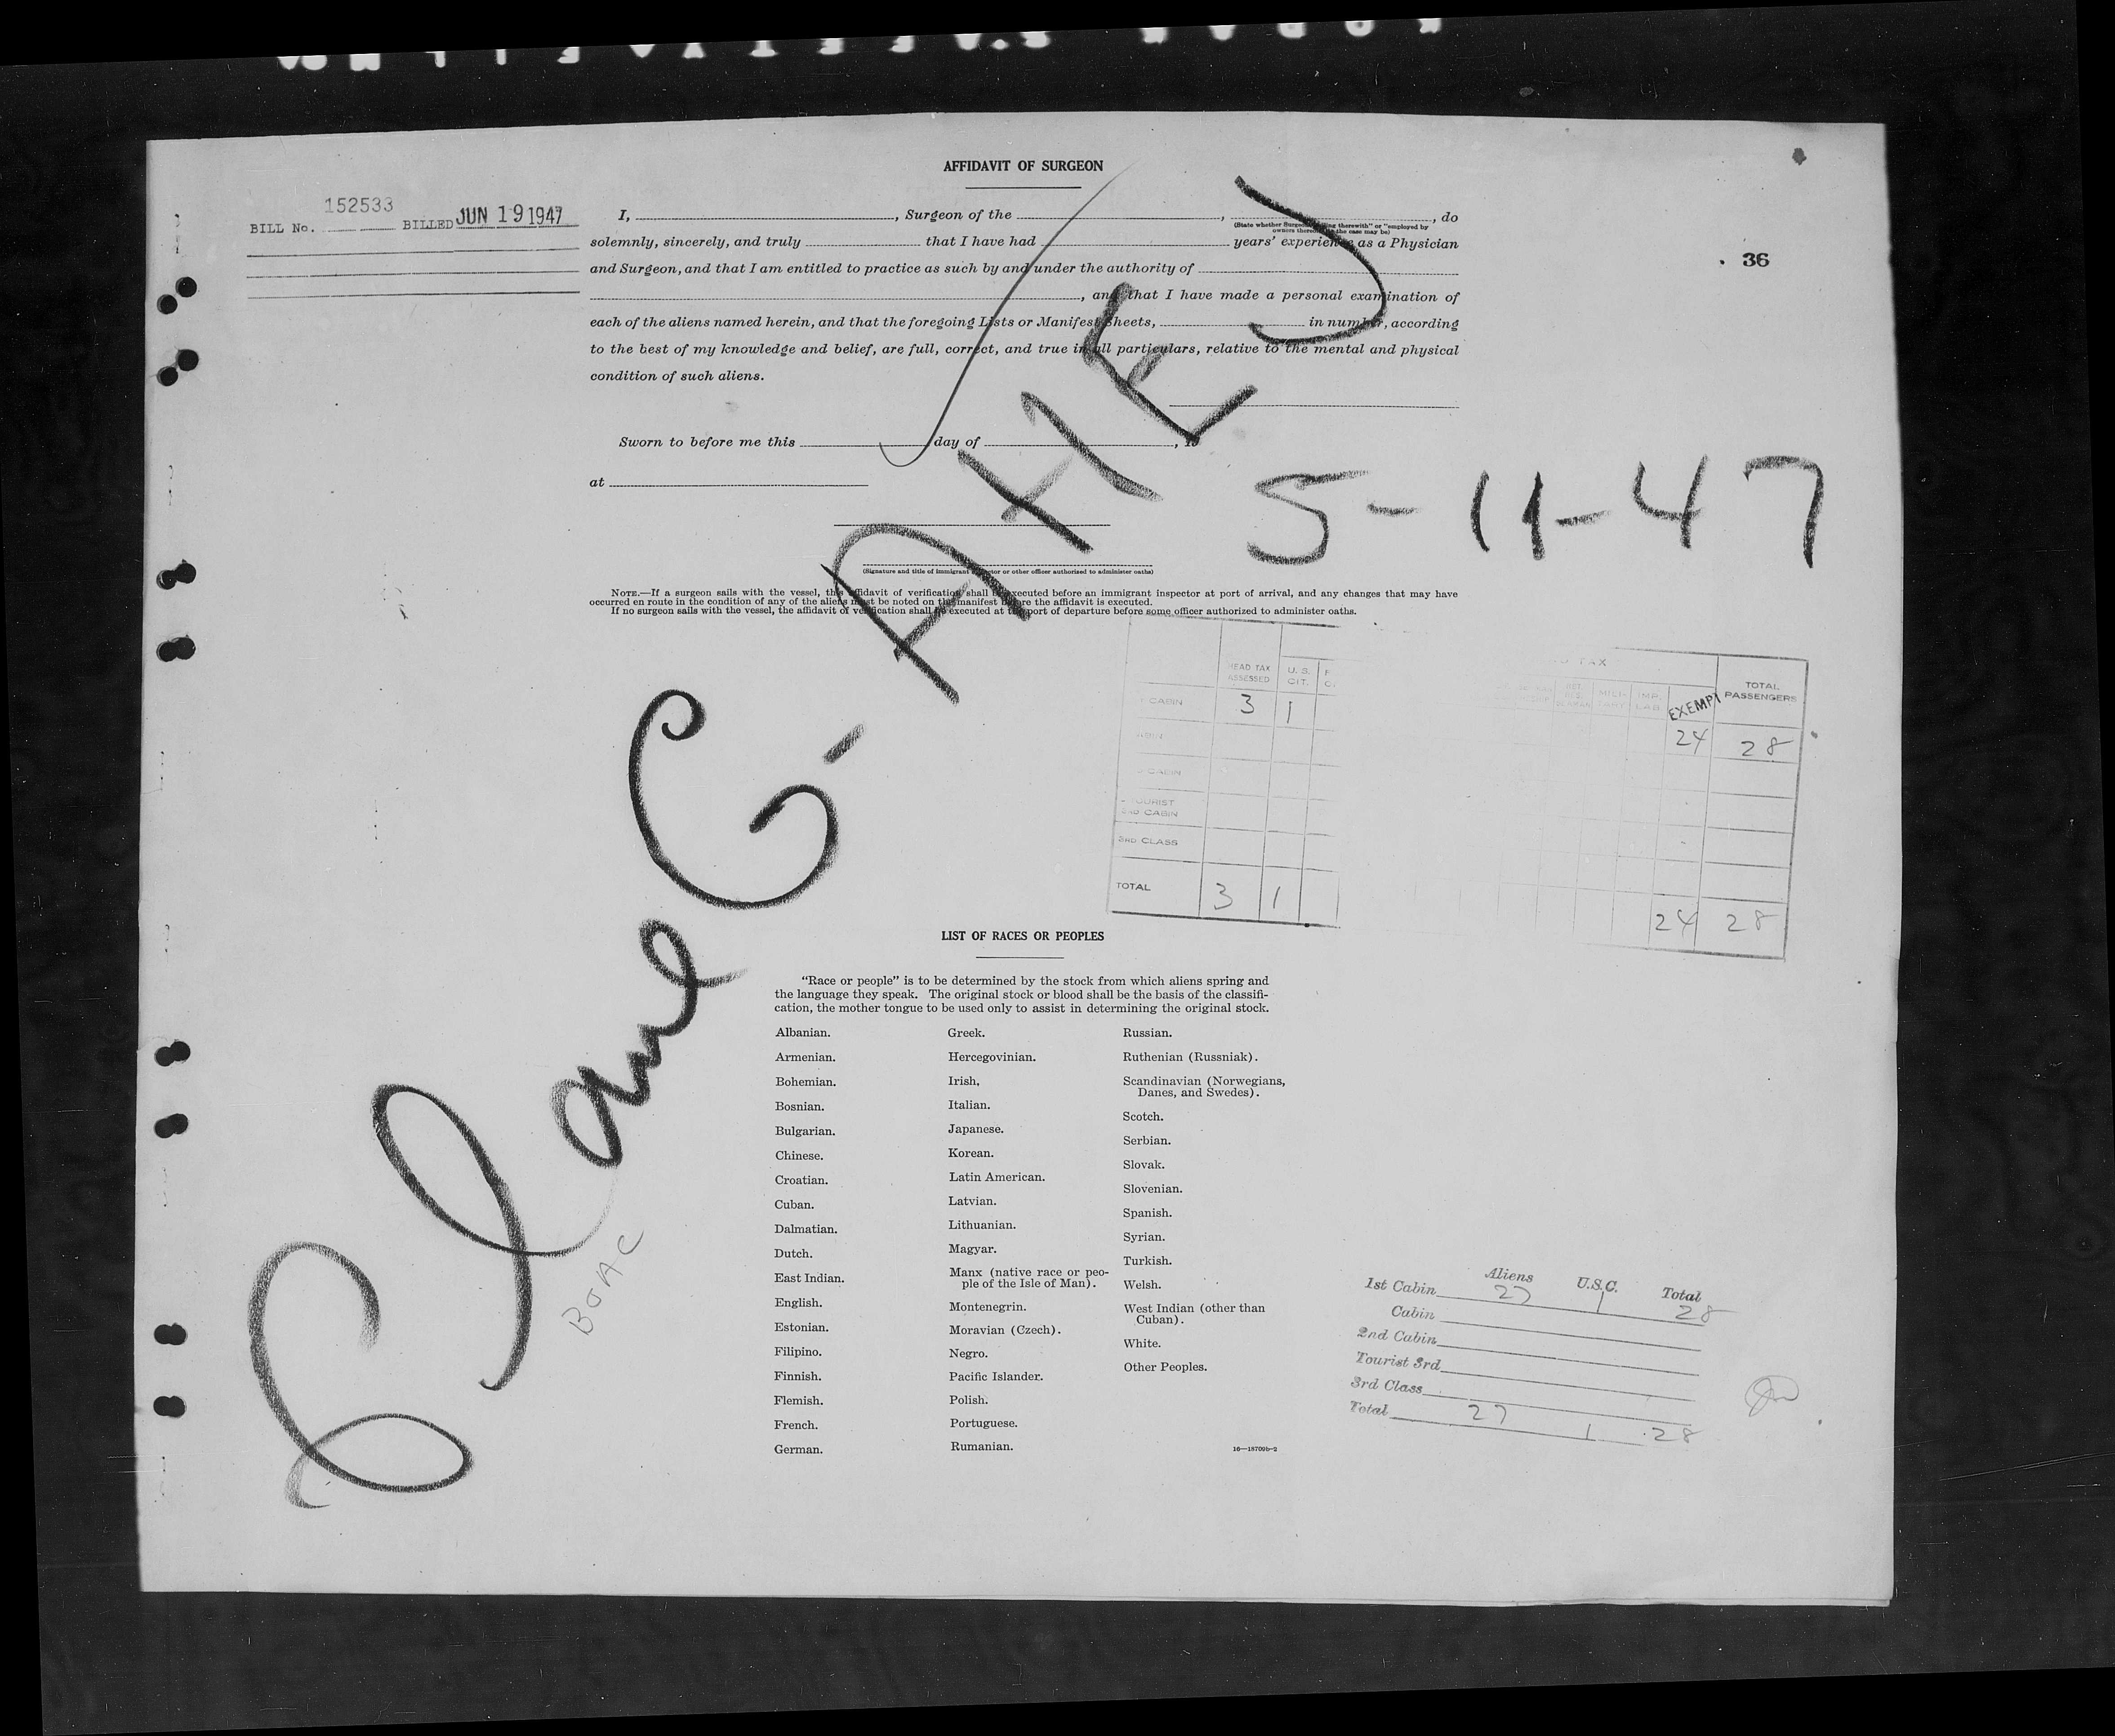 AFFIDAVIT OF SURGEON
BILL No. 152533 BILLED JUN 19 1947
I, , Surgeon of the , , do
(State whether Surgeon sailing therewith" or "employed by
owners thereof" as the case may be)
solemnly, sincerely, and truly that I have had years' experience as a Physician
and Surgeon, and that I am entitled to practice as such by and under the authority of
36
, and that I have made a personal examination of
each of the aliens named herein, and that the foregoing Lists or Manifest Sheets, in number, according
to the best of my knowledge and belief, are full, correct, and true in all particulars, relative to the mental and physical
condition of such aliens.
Sworn to before me this day of , 19
at
5-11-47
(Signature and title of immigrant inspector or other officer authorized to administer oaths)
NOTE.—If a surgeon sails with the vessel, this affidavit of verification shall be executed before an immigrant inspector at port of arrival, and any changes that may have
occurred en route in the condition of any of the aliens must be noted on the manifest before the affidavit is executed.
If no surgeon sails with the vessel, the affidavit of verification shall be executed at the port of departure before some officer authorized to administer oaths.
Plane G-AHEJ
BOAC
HEAD TAX ASSESSED U. S. CIT.
CABIN 3 1
CABIN
CABIN
TOURIST
3RD CABIN
3RD CLASS
TOTAL 3 1
TAX
EXEMPT TOTAL PASSENGERS
24 28
24 28
LIST OF RACES OR PEOPLES
"Race or people" is to be determined by the stock from which aliens spring and
the language they speak. The original stock or blood shall be the basis of the classifi-
cation, the mother tongue to be used only to assist in determining the original stock.
Albanian.
Armenian.
Bohemian.
Bosnian.
Bulgarian.
Chinese.
Croatian.
Cuban.
Dalmatian.
Dutch.
East Indian.
English.
Estonian.
Filipino.
Finnish.
Flemish.
French.
German.
Greek.
Hercegovinian.
Irish,
Italian.
Japanese.
Korean.
Latin American.
Latvian.
Lithuanian.
Magyar.
Manx (native race or peo-
ple of the Isle of Man).
Montenegrin.
Moravian (Czech).
Negro.
Pacific Islander.
Polish.
Portuguese.
Rumanian.
Russian.
Ruthenian (Russniak).
Scandinavian (Norwegians,
Danes, and Swedes).
Scotch.
Serbian.
Slovak.
Slovenian.
Spanish.
Syrian.
Turkish.
Welsh.
West Indian (other than
Cuban).
White.
Other Peoples.
16—18709b-2
Aliens U.S.C. Total
1st Cabin 27 1 28
Cabin
2nd Cabin
Tourist 3rd
3rd Class
Total 27 1 28